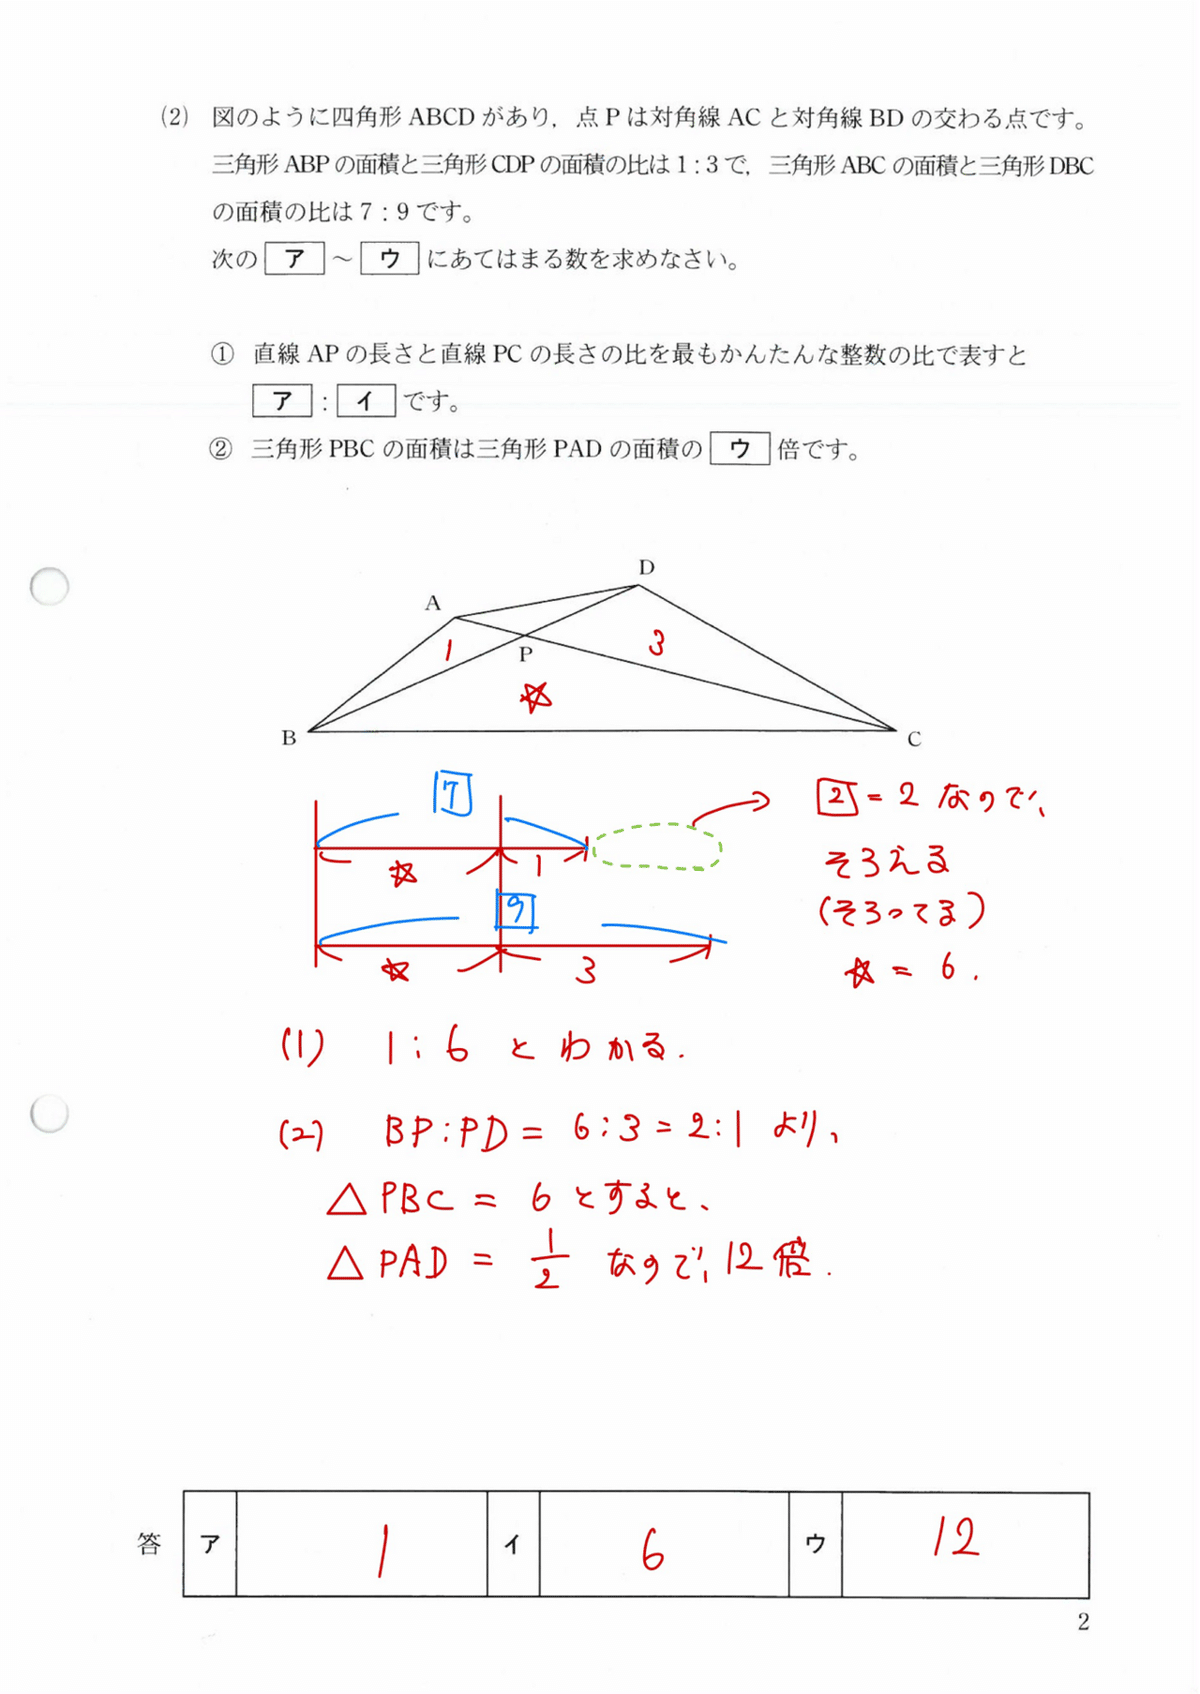 (2) 図のように四角形 ABCD があり，点 P は対角線 AC と対角線 BD の交わる点です。
三角形 ABP の面積と三角形 CDP の面積の比は 1 : 3 で，三角形 ABC の面積と三角形 DBC
の面積の比は 7 : 9 です。
次の ア ～ ウ にあてはまる数を求めなさい。
① 直線 AP の長さと直線 PC の長さの比を最もかんたんな整数の比で表すと
ア : イ です。
② 三角形 PBC の面積は三角形 PAD の面積の ウ 倍です。
D
A
1
P
3
☆
B
C
7
☆
1
2 = 2 なので、
そろえる
(そろってる)
9
☆
3
☆ = 6.
(1) 1 : 6 とわかる.
(2) BP : PD = 6 : 3 = 2 : 1 より、
△PBC = 6 とすると、
△PAD = 1/2 なので、12倍.
答 ア 1 イ 6 ウ 12
2